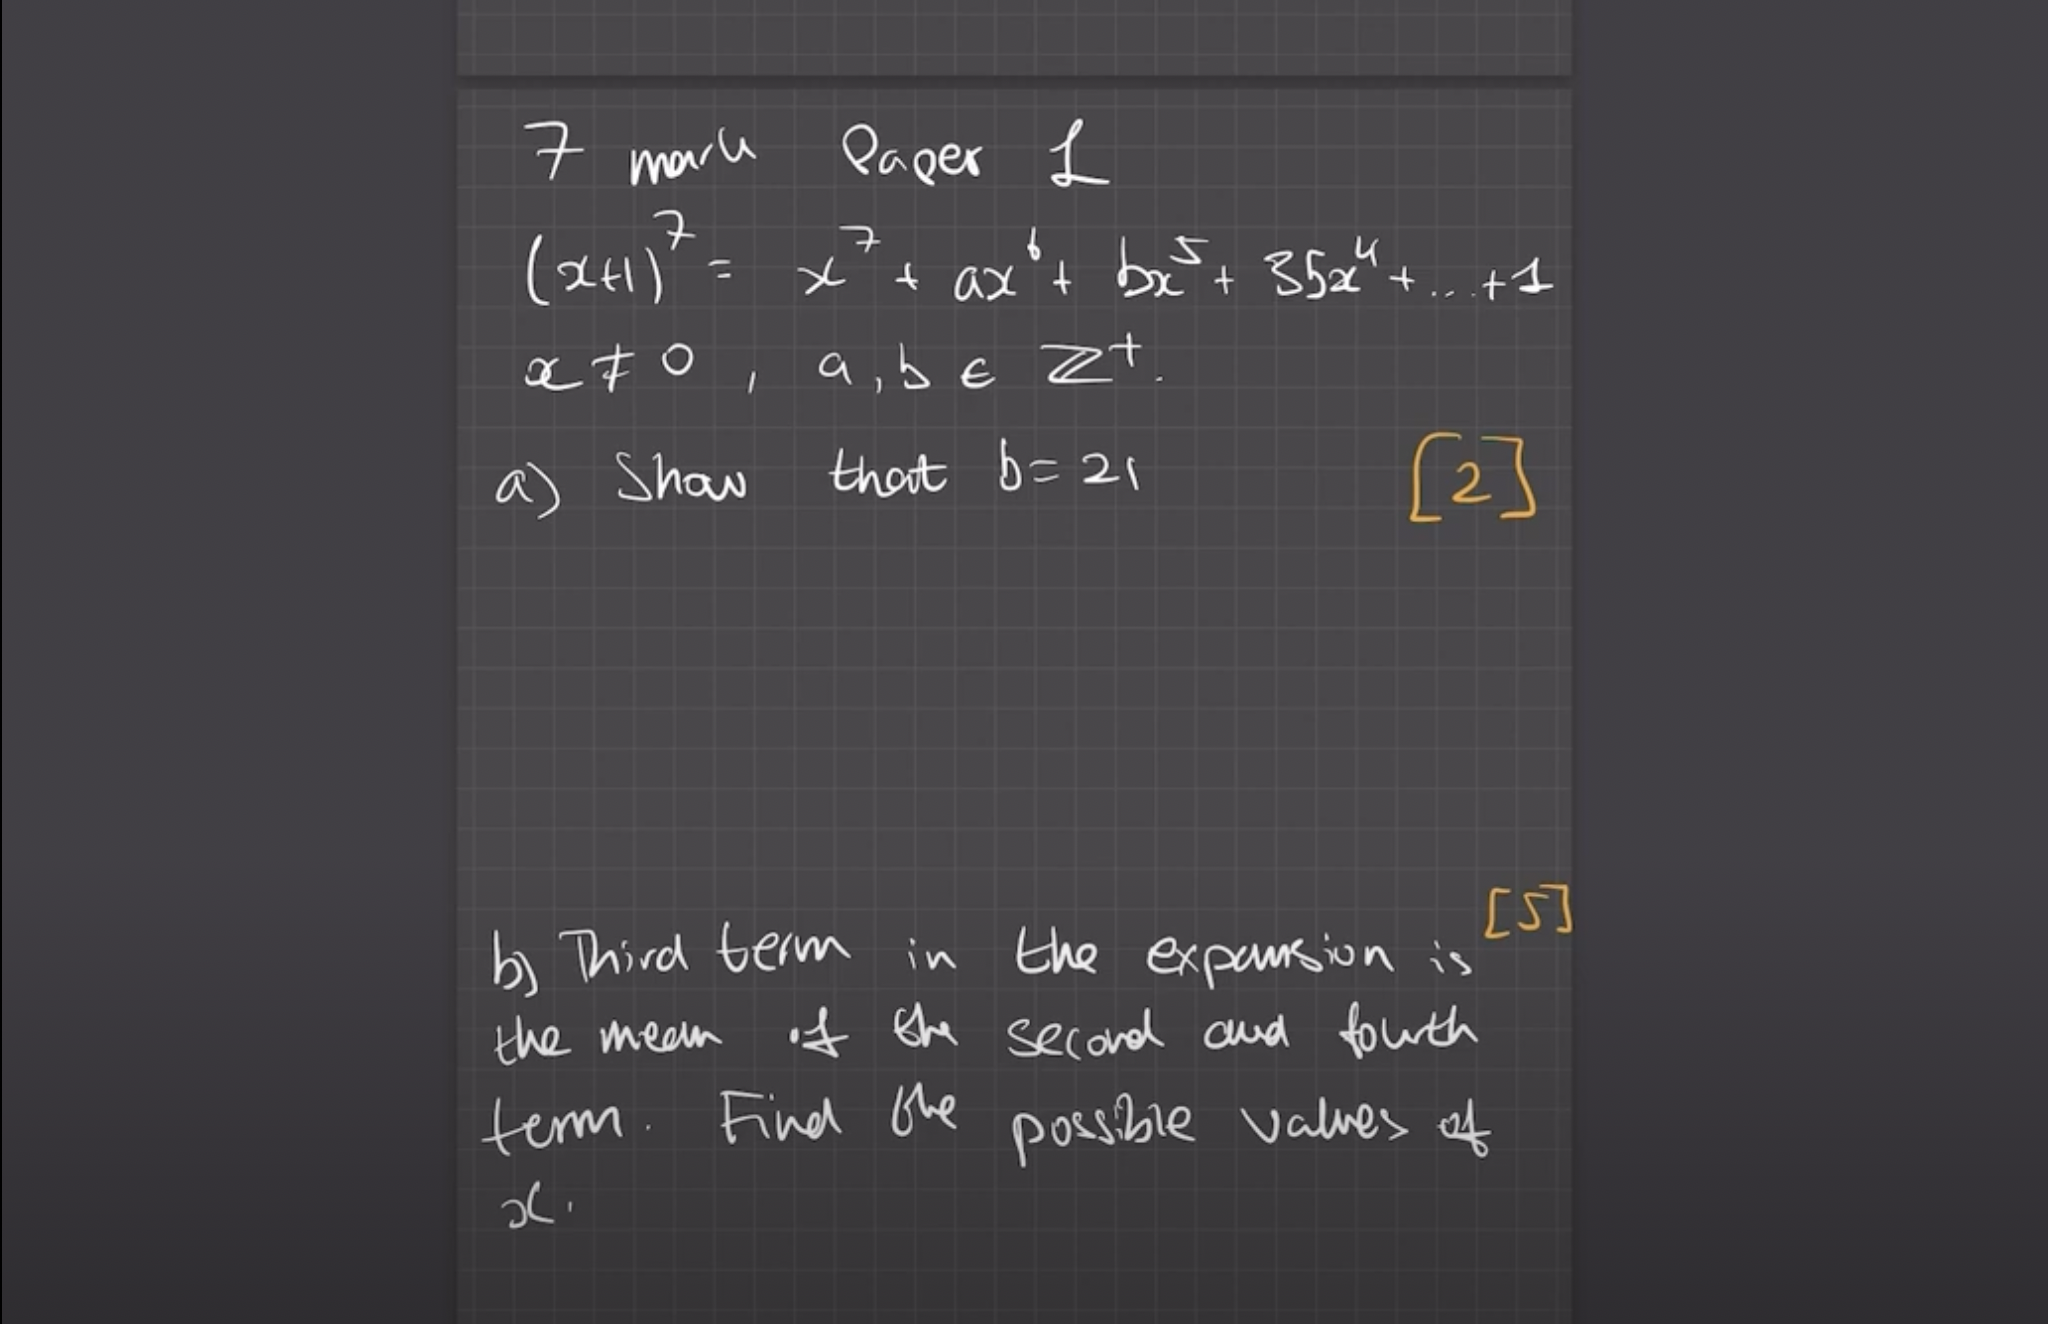 7 mark Paper 1
(x+1)⁷ = x⁷ + ax⁶ + bx⁵ + 35x⁴ + ... + 1
x ≠ 0, a, b ∈ ℤ⁺.
a) Show that b = 21 [2]
[5]
b) Third term in the expansion is
the mean of the second and fourth
term. Find the possible values of
x.